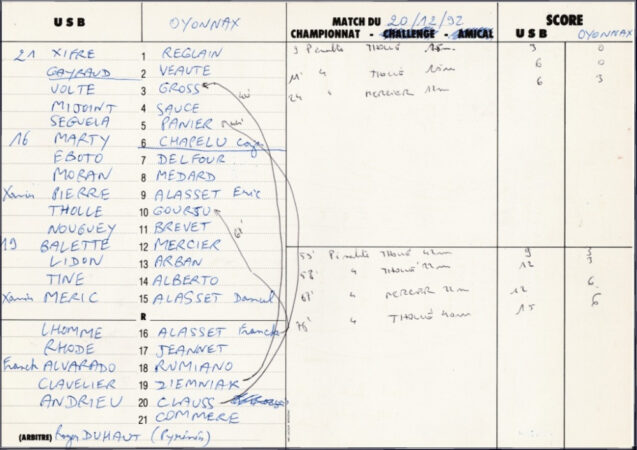 USB OYONNAX MATCH DU 20/12/92 SCORE
CHAMPIONNAT - CHALLENGE - AMICAL USB OYONNAX
21 XIFRE 1 REGLAIN
GAYRAUD 2 VEAUTE
VOLTE 3 GROSS
MIJOINT 4 SAUCE
SEGUELA 5 PANIER
16 MARTY 6 CHAPELU
EBOTO 7 DELFOUR
MORAN 8 MEDARD
Xavier PIERRE 9 ALASSET Eric
THOLLE 10 GOURSU
NOUGUEY 11 BREVET
19 BALETTE 12 MERCIER
LIDON 13 ARBAN
TINE 14 ALBERTO
MERIC 15 ALASSET Daniel
R
LHOMME 16 ALASSET Franck
RHODE 17 JEANNET
Franck ALVARADO 18 RUMIANO
CLAVELIER 19 ZIEMNIAK
ANDRIEU 20 CLAUSS
21 COMMERE
(ARBITRE) Roger DUHAUT (Pyrénées)
3 0
6 0
6 3
24 " MERCIER
55' Pénalité 42m 9 3
58' " 12 3
6
MERCIER 22m 12 6
76' " THOLLÉ 40m 15